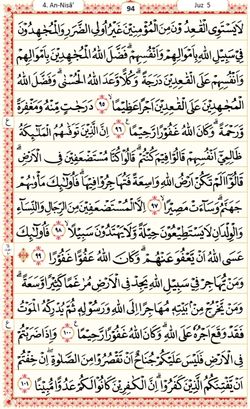 4. An-Nisâ' 94 Juz 5
لَا يَسْتَوِى الْقٰعِدُوْنَ مِنَ الْمُؤْمِنِيْنَ غَيْرُ اُولِى الضَّرَرِ وَالْمُجٰهِدُوْنَ
فِيْ سَبِيْلِ اللّٰهِ بِاَمْوَالِهِمْ وَاَنْفُسِهِمْ ۗ فَضَّلَ اللّٰهُ الْمُجٰهِدِيْنَ بِاَمْوَالِهِمْ
وَاَنْفُسِهِمْ عَلَى الْقٰعِدِيْنَ دَرَجَةً ۗ وَكُلًّا وَّعَدَ اللّٰهُ الْحُسْنٰى ۗ وَفَضَّلَ اللّٰهُ
الْمُجٰهِدِيْنَ عَلَى الْقٰعِدِيْنَ اَجْرًا عَظِيْمًا ۙ ٩٥ دَرَجٰتٍ مِّنْهُ وَمَغْفِرَةً
وَّرَحْمَةً ۗ وَكَانَ اللّٰهُ غَفُوْرًا رَّحِيْمًا ٩٦ اِنَّ الَّذِيْنَ تَوَفّٰىهُمُ الْمَلٰۤىِٕكَةُ
ظَالِمِيْٓ اَنْفُسِهِمْ قَالُوْا فِيْمَ كُنْتُمْ ۗ قَالُوْا كُنَّا مُسْتَضْعَفِيْنَ فِى الْاَرْضِ ۗ
قَالُوْٓا اَلَمْ تَكُنْ اَرْضُ اللّٰهِ وَاسِعَةً فَتُهَاجِرُوْا فِيْهَا ۗ فَاُولٰۤىِٕكَ مَأْوٰىهُمْ
جَهَنَّمُ ۗ وَسَاۤءَتْ مَصِيْرًا ۙ ٩٧ اِلَّا الْمُسْتَضْعَفِيْنَ مِنَ الرِّجَالِ وَالنِّسَاۤءِ
وَالْوِلْدَانِ لَا يَسْتَطِيْعُوْنَ حِيْلَةً وَّلَا يَهْتَدُوْنَ سَبِيْلًا ۙ ٩٨ فَاُولٰۤىِٕكَ
عَسَى اللّٰهُ اَنْ يَّعْفُوَ عَنْهُمْ ۗ وَكَانَ اللّٰهُ عَفُوًّا غَفُوْرًا ٩٩
وَمَنْ يُّهَاجِرْ فِيْ سَبِيْلِ اللّٰهِ يَجِدْ فِى الْاَرْضِ مُرَاغَمًا كَثِيْرًا وَّسَعَةً ۗ
وَمَنْ يَّخْرُجْ مِنْۢ بَيْتِهٖ مُهَاجِرًا اِلَى اللّٰهِ وَرَسُوْلِهٖ ثُمَّ يُدْرِكْهُ الْمَوْتُ
فَقَدْ وَقَعَ اَجْرُهٗ عَلَى اللّٰهِ ۗ وَكَانَ اللّٰهُ غَفُوْرًا رَّحِيْمًا ١٠٠ وَاِذَا ضَرَبْتُمْ
فِى الْاَرْضِ فَلَيْسَ عَلَيْكُمْ جُنَاحٌ اَنْ تَقْصُرُوْا مِنَ الصَّلٰوةِ ۖ اِنْ خِفْتُمْ
اَنْ يَّفْتِنَكُمُ الَّذِيْنَ كَفَرُوْا ۗ اِنَّ الْكٰفِرِيْنَ كَانُوْا لَكُمْ عَدُوًّا مُّبِيْنًا ١٠١